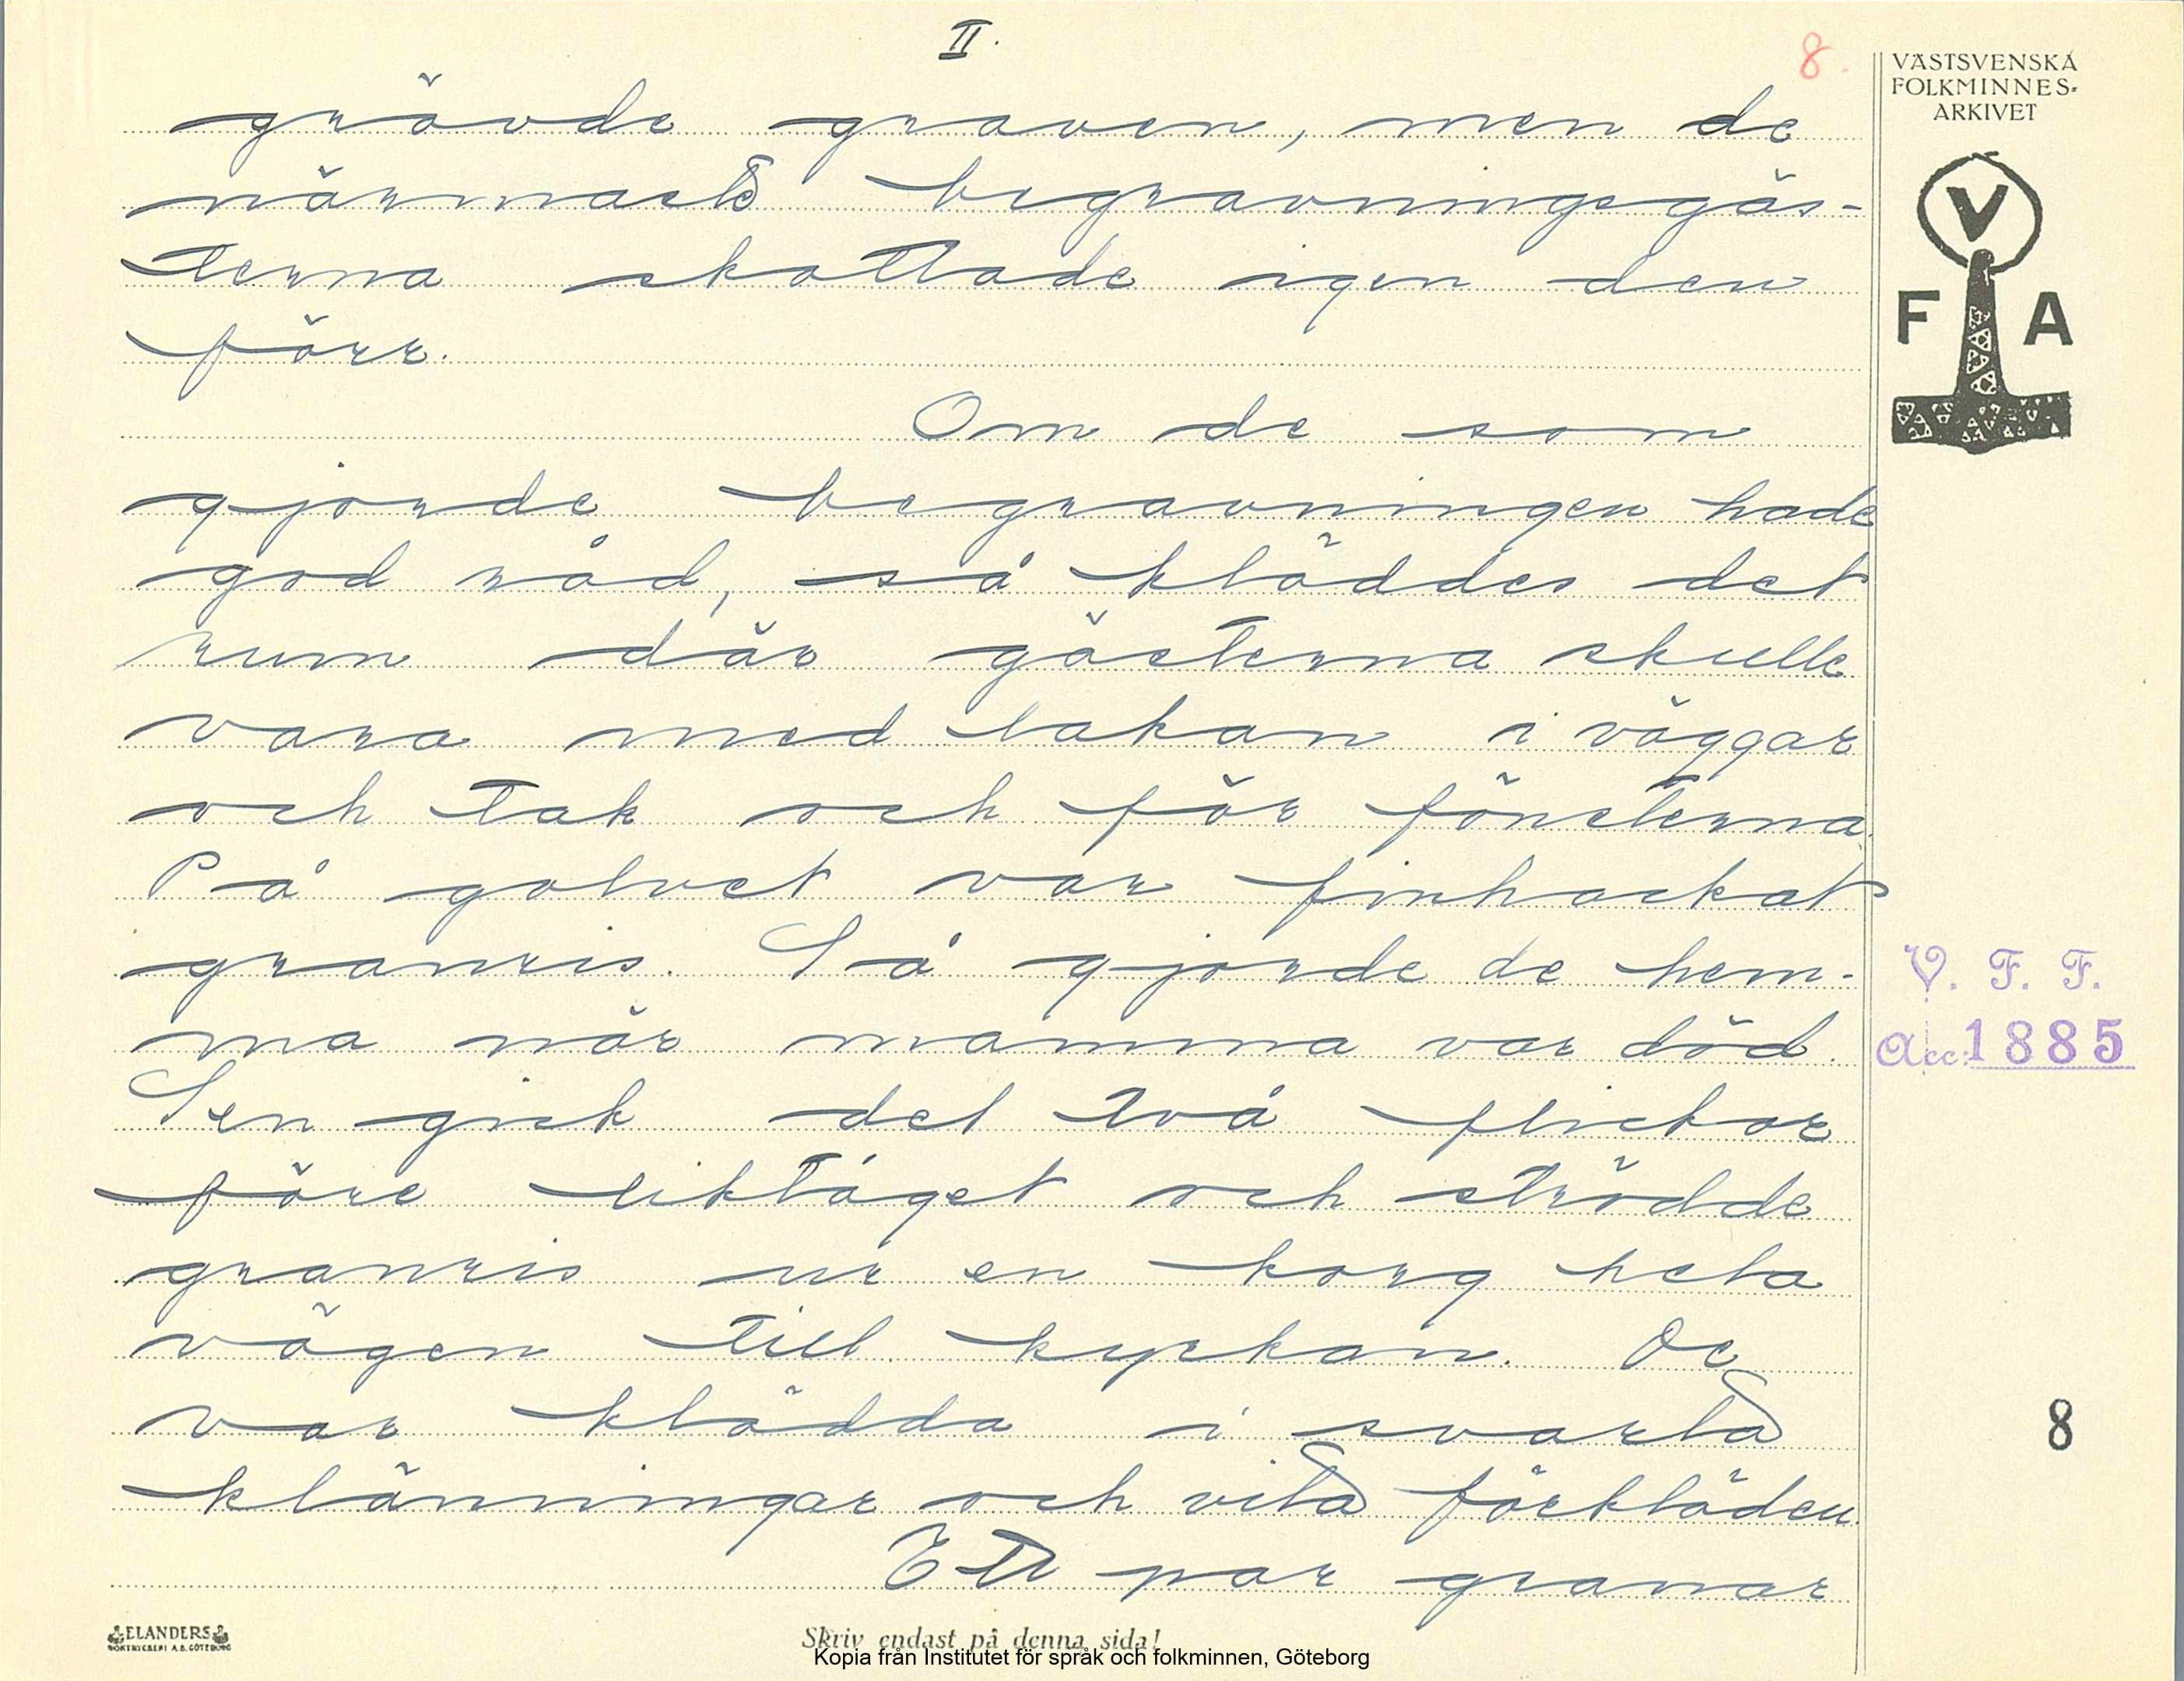 II.
8.
VÄSTSVENSKA
FOLKMINNES-
ARKIVET
V
F A
grävde graven, men de
närmaste begravningsgäs-
terna skottade igen den
förr.
Om de som
gjorde begravningen hade
god råd, så kläddes det
rum där gästerna skulle
vara med lakan i väggar
och tak och för fönsterna.
På golvet var finhackat
granris. Så gjorde de hem-
ma när mamma var död.
Sen gick det två flickor
före liktåget och strödde
granris ur en korg hela
vägen till kyrkan. De
var klädda i svarta
klänningar och vita förkläden.
Ett par granar
V. F. F.
Acc: 1885
8
ELANDERS
BOKTRYCKERI A.B. GÖTEBORG
Skriv endast på denna sida!
Kopia från Institutet för språk och folkminnen, Göteborg